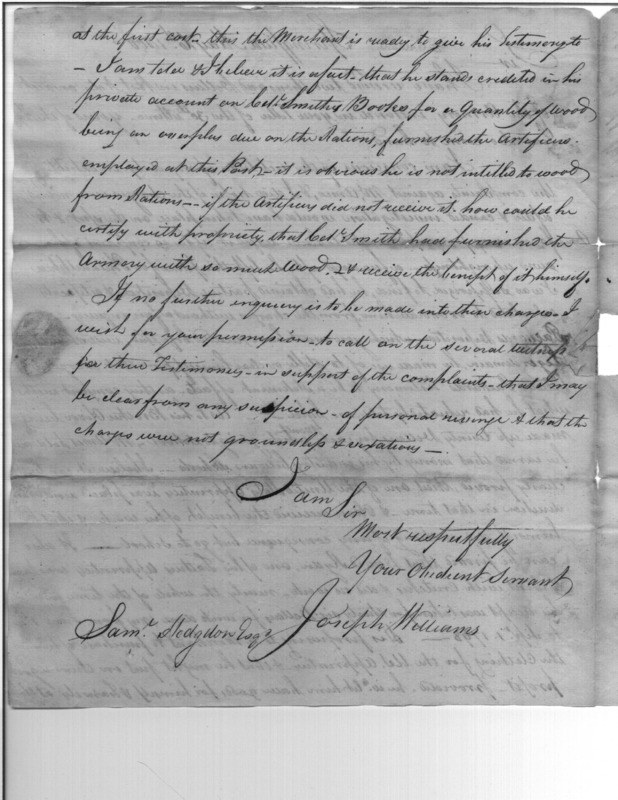 at the first cost - this the Merchant is ready to give his Testimony to
- I am told & I believe it is a fact - that he stands credited in his
private account on Colº. Smiths Books for a Quantity of wood
being an overplus due on the Rations, furnished the Artificers
employed at this Post - it is obvious he is not intitled to wood
from Rations -- if the Artificers did not receive it how could he
certify with propriety, that Colº. Smith had furnished the
Armory with so much Wood, & receive the benifit of it himself.
If no further enquery is to be made into these charges - I
wish for your permission - to call on the several witness
for their Testimonies - in support of the complaints - that I may
be clear from any suspicion - of personal revenge & that the
charges were not groundless & vexatious -
I am
Sir
Most respectfully
Your Obedient Servant
Joseph Williams
Samˡ. Hodgdon Esqʳ